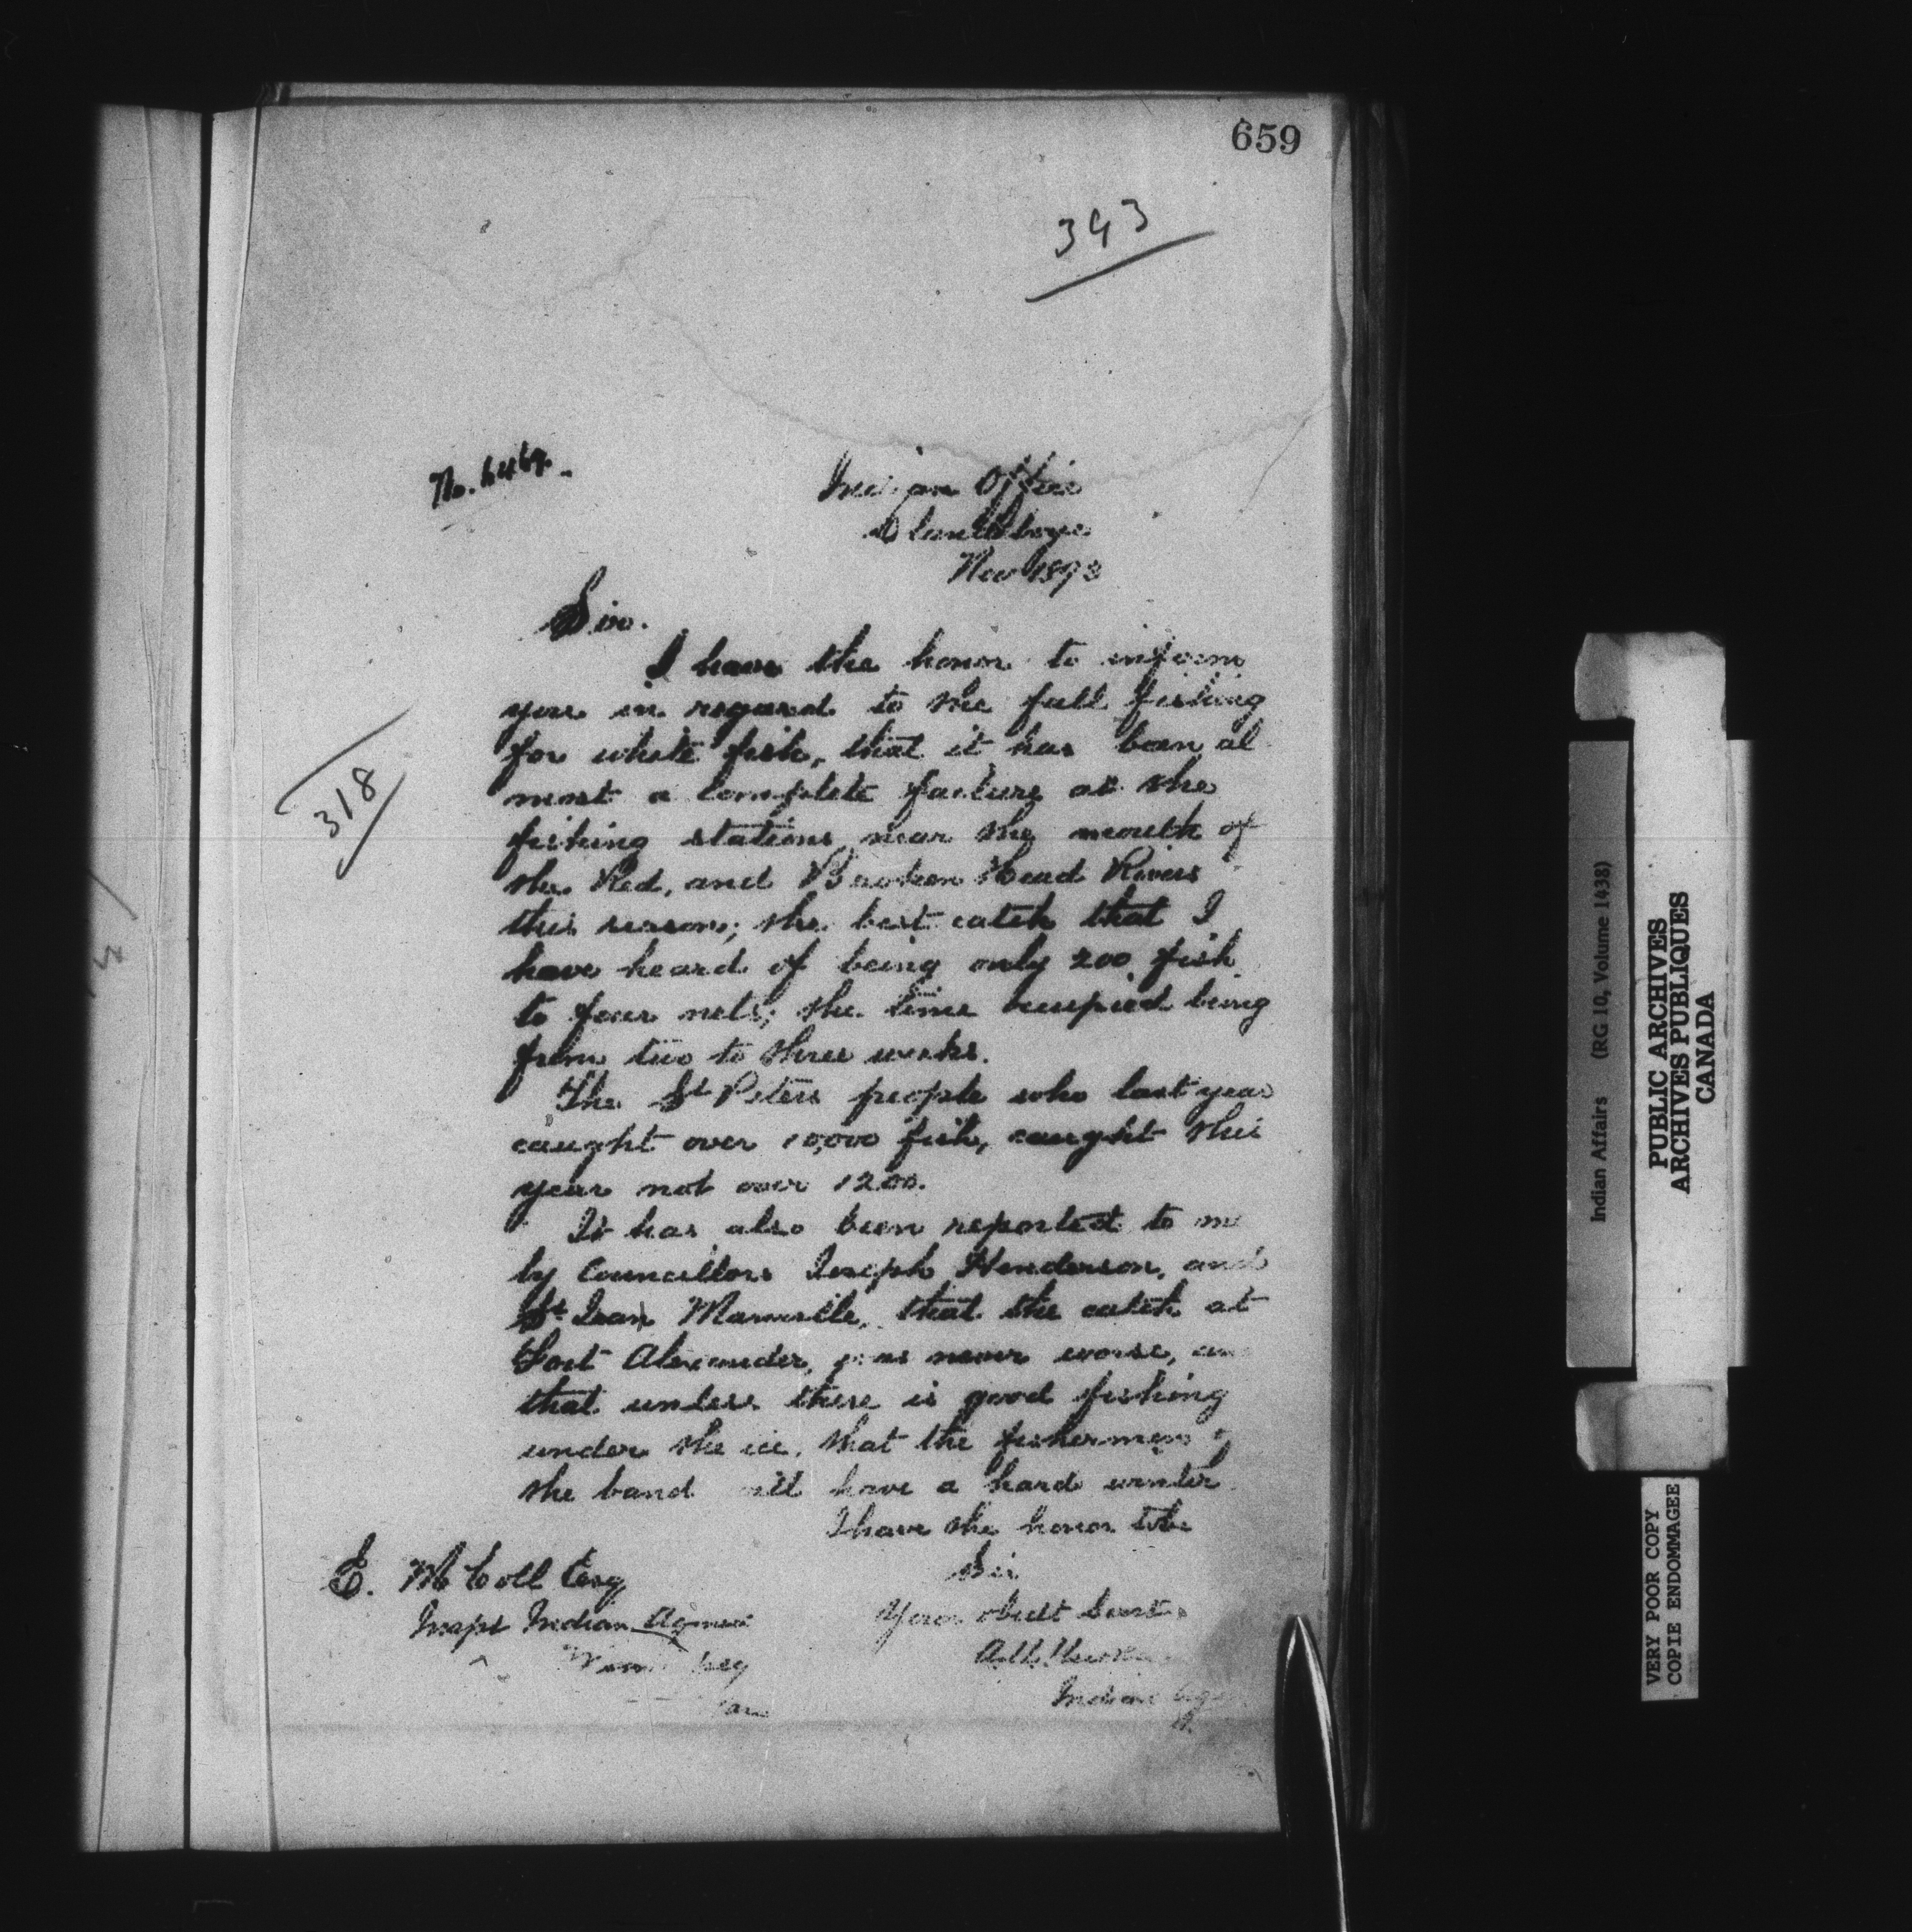 659
343
No. 6469.
Indian Office
Clandeboye
Nov 1893
Sir.
I have the honor to inform
you in regard to the fall fishing
for white fish, that it has been al
most a complete failure at the
fishing stations near the mouth of
the Red, and Broken Head Rivers
this season; the best catch that I
have heard of being only 200 fish
to four nets; the time occupied being
from two to three weeks.
The St Peters people who last year
caught over 10,000 fish, caught this
year not over 1200.
It has also been reported to me
by Councillors Joseph Henderson, and
St Jean Manville, that the catch at
Fort Alexander, was never worse, and
that unless there is good fishing
under the ice, that the fishermen of
the band will have a hard winter
I have the honor to be
Sir
Your obedt Servt
Indian Agent
E. McColl Esq
Inspt Indian Agencies
Winnipeg
Man
318
Indian Affairs (RG 10, Volume 1438)
PUBLIC ARCHIVES
ARCHIVES PUBLIQUES
CANADA
VERY POOR COPY
COPIE ENDOMMAGEE